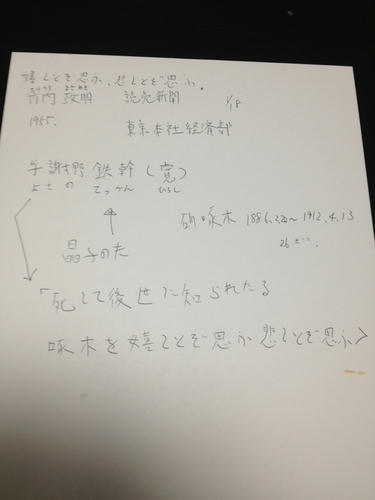 嬉しとぞ思ふ、悲しとぞ思ふ。
竹内 政明 読売新聞 1/18
1955. 東京本社経済部
与謝野 鉄幹(寛)
よさの てっかん ひろし
啄木 1886.2.20~1912.4.13
晶子の夫
26才
「死して後世に知られたる
啄木を嬉しとぞ思ふ 悲しとぞ思ふ